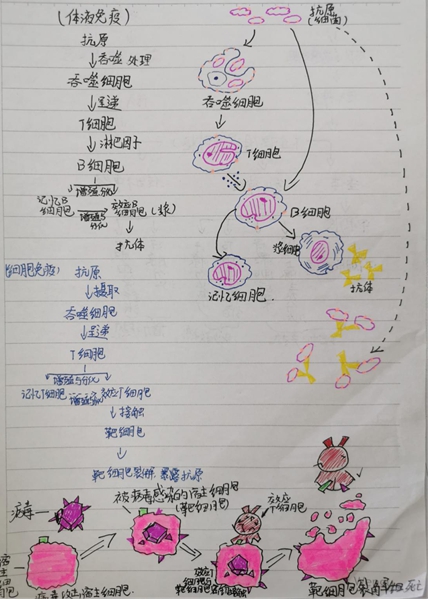 (体液免疫)
抗原
吞噬 处理
吞噬细胞
呈递
T细胞
淋巴因子
B细胞
增殖分化
记忆B细胞
增殖与分化
效应B细胞(浆)
抗体
抗原
(细菌)
吞噬细胞
T细胞
B细胞
浆细胞
抗体
记忆细胞.
(细胞免疫)
抗原
摄取
吞噬细胞
呈递
T细胞
增殖与分化
记忆T细胞
增殖分化
效应T细胞
接触
靶细胞
靶细胞裂解 暴露抗原
病毒
被病毒感染的宿主细胞
(靶细胞)
效应T细胞
宿主细胞
病毒侵染宿主细胞.